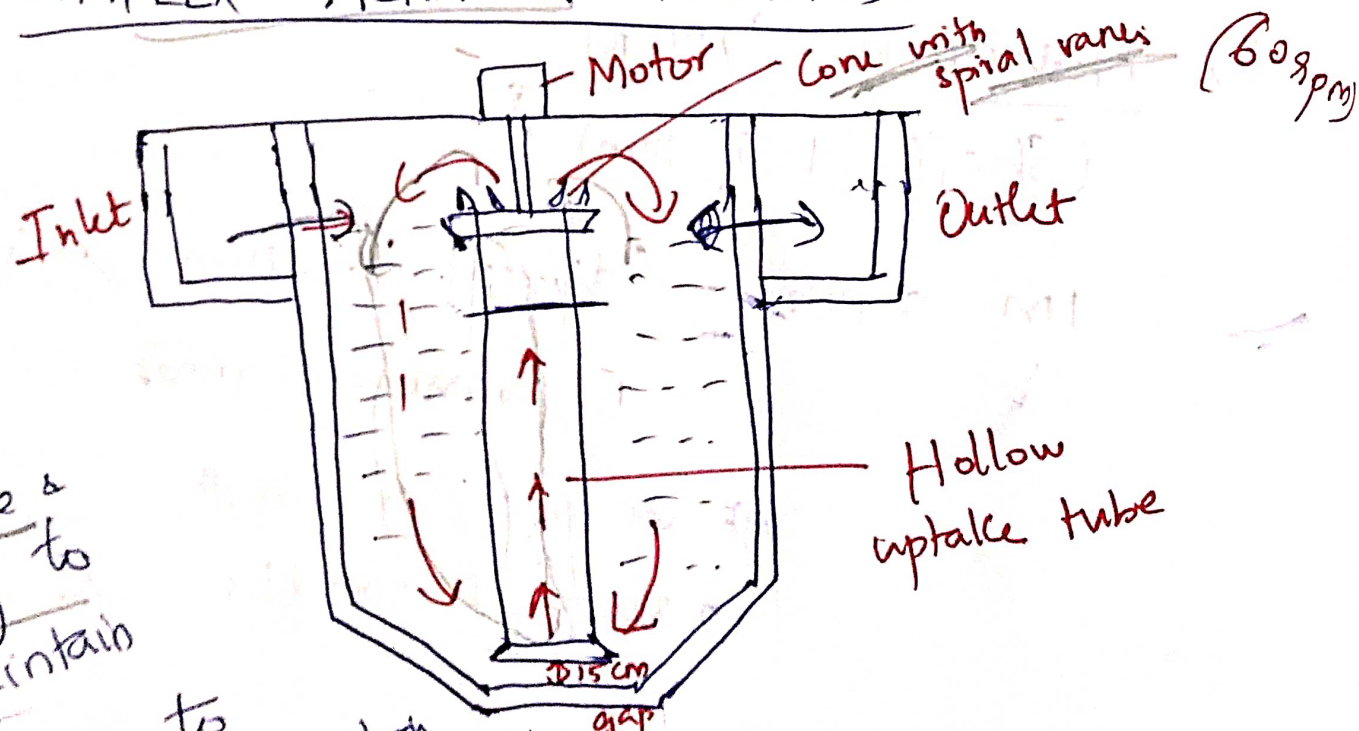 Motor
Cone with
spiral vanes
(60 rpm)
Inlet
Outlet
Hollow
uptake tube
&
to
intain
to
15 cm
gap